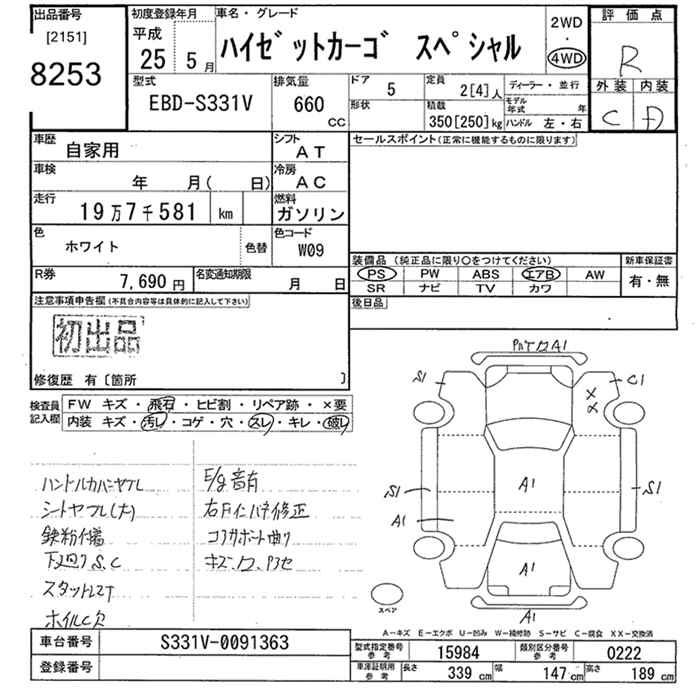 出品番号
[2151]
8253
初度登録年月
平成
25年5月
車名・グレード
ハイゼットカーゴ スペシャル
2WD
・
4WD
評価点
R
外装 内装
C D
型式
EBD-S331V
排気量
660
CC
ドア
5
形状
定員
2[4]人
積載
350[250]kg
ディーラー・並行
モデル年式 年
ハンドル 左・右
車歴
自家用
シフト
AT
車検
年 月( 日)
冷房
AC
走行
19万7千581 km
燃料
ガソリン
色
ホワイト
色替
色コード
W09
R券
7,690円
名変通知期限
月 日
セールスポイント(正常に機能するものに限ります)
装備品(純正品に限り○をつけてください)
新車保証書
PS PW ABS エアB AW
有・無
SR ナビ TV カワ
後日品
注意事項申告欄(不具合内容等は具体的に記入して下さい)
初出品
修復歴 有[箇所 ]
検査員記入欄
FW キズ・飛石・ヒビ割・リペア跡・×要
内装 キズ・汚レ・コゲ・穴・スレ・キレ・破レ
ハンドルカバーヤブレ
シートヤブレ(大)
鉄粉付着
下廻りS.C
スタットレスT
ホイルC欠
E/g音有
右Fインパネ修正
コアサポート曲り
キズ.凹.アセ
A1
S1
C1
×
×
S1
A1
A1
S1
A1
A1
スペア
A−キズ E−エクボ U−凹み W−補修跡 S−サビ C−腐食 XX−交換済
車台番号
S331V-0091363
登録番号
型式指定番号
参考
15984
類別区分番号
参考
0222
車庫証明用
参考
長さ
339 cm
幅
147 cm
高さ
189 cm